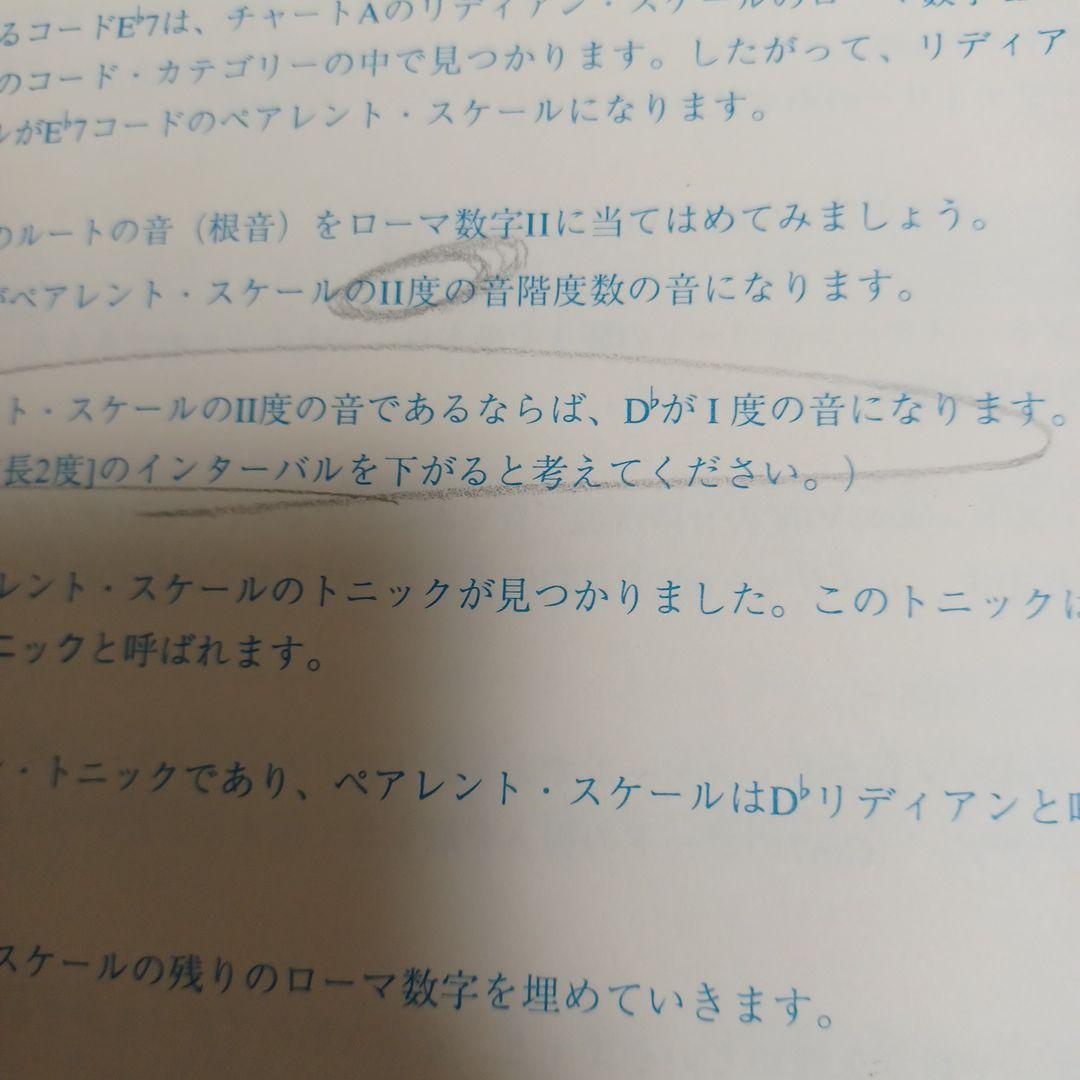 るコードE♭7は、チャートAのリディアン・スケールのローマ数字
のコード・カテゴリーの中で見つかります。したがって、リディア
ルがE♭7コードのペアレント・スケールになります。
のルートの音（根音）をローマ数字IIに当てはめてみましょう。
がペアレント・スケールのII度の音階度数の音になります。
ト・スケールのII度の音であるならば、D♭がI度の音になります。
[長2度]のインターバルを下がると考えてください。）
レント・スケールのトニックが見つかりました。このトニックは
ニックと呼ばれます。
・トニックであり、ペアレント・スケールはD♭リディアンと呼
スケールの残りのローマ数字を埋めていきます。